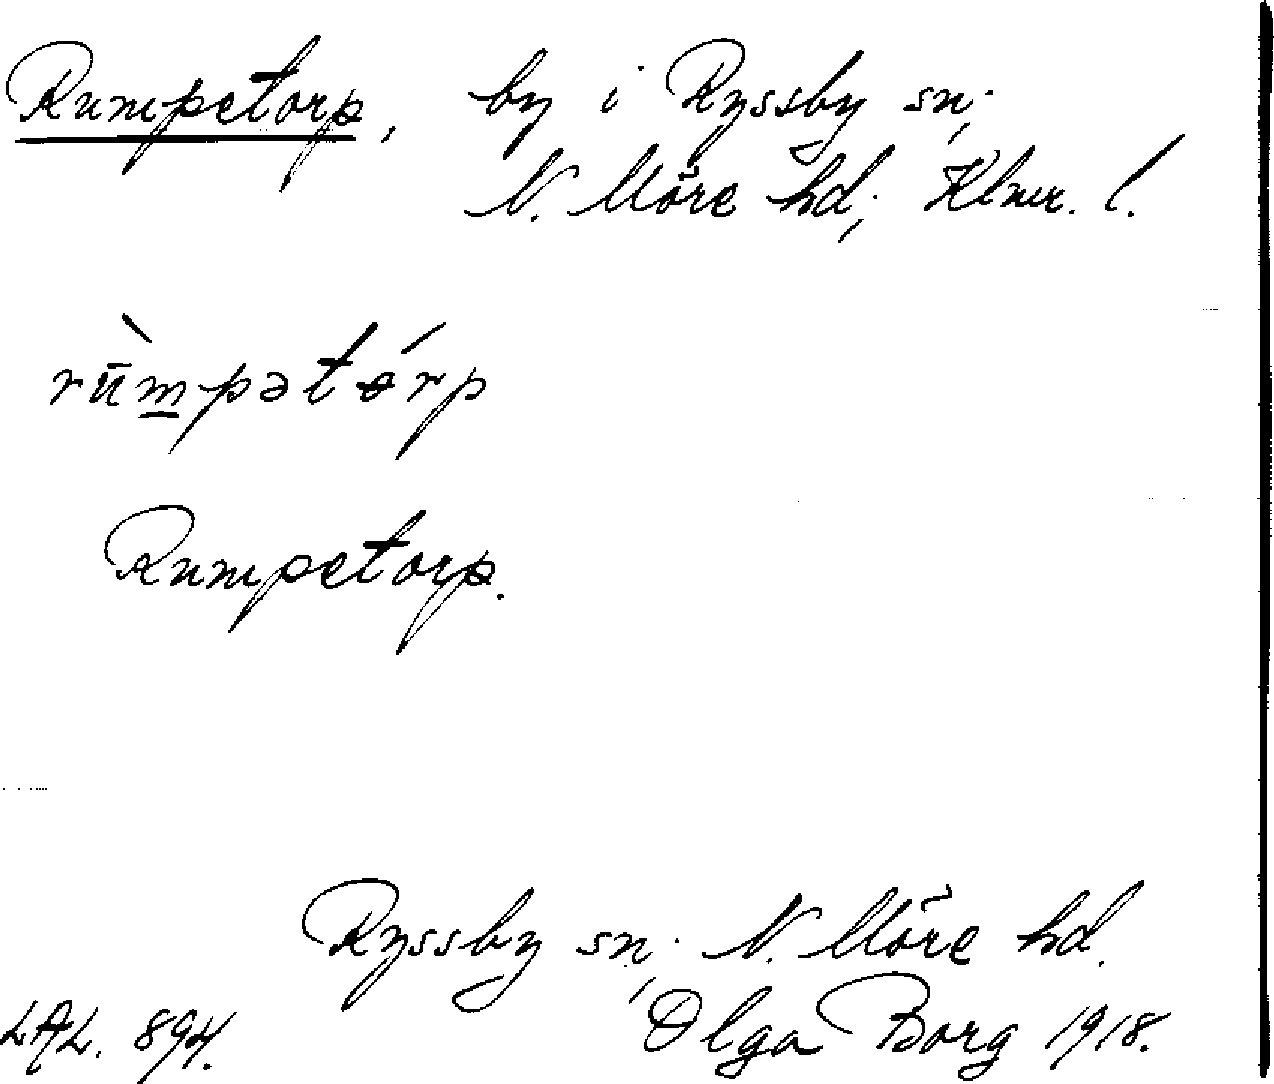 Rumpetorp, by i Ryssby sn;
N. Möre hd; Klmr. l.
rū̀m̲pətɵ́rp
Rumpetorp.
Ryssby sn; N. Möre hd.
LAL. 894. Olga Borg 1918.